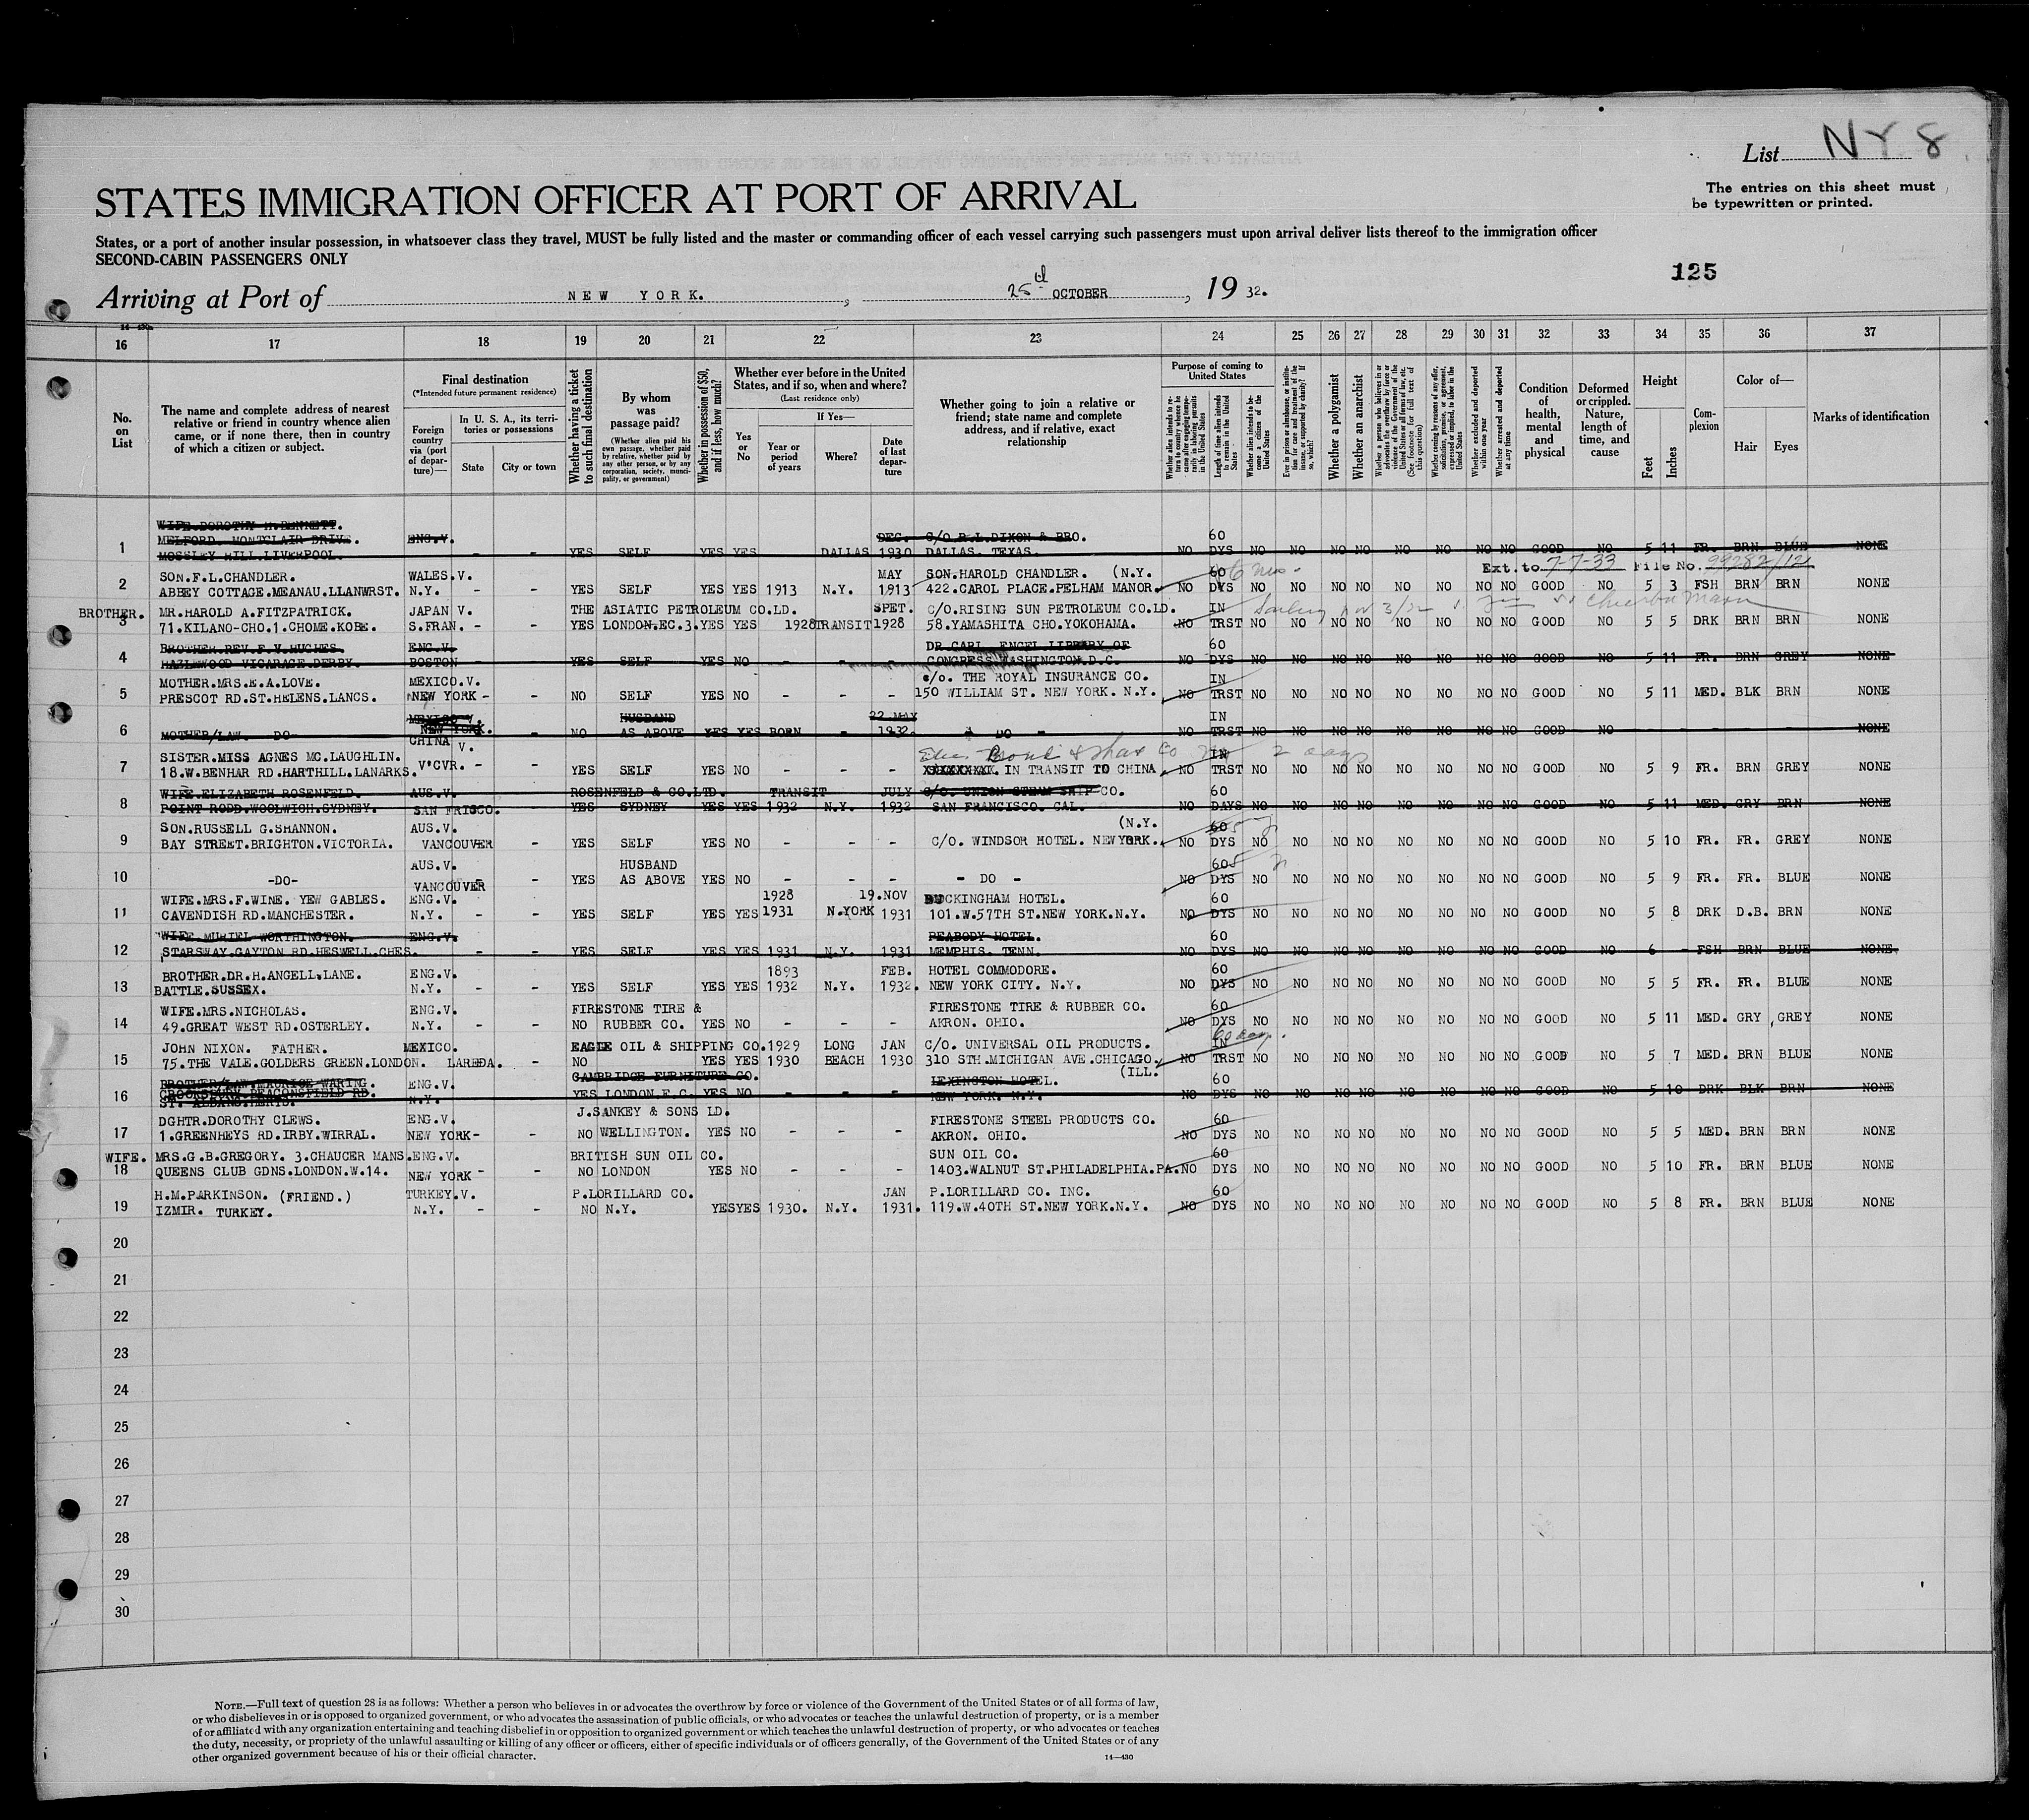 List NY 8
STATES IMMIGRATION OFFICER AT PORT OF ARRIVAL
The entries on this sheet must
be typewritten or printed.
States, or a port of another insular possession, in whatsoever class they travel, MUST be fully listed and the master or commanding officer of each vessel carrying such passengers must upon arrival deliver lists thereof to the immigration officer
SECOND-CABIN PASSENGERS ONLY
125
Arriving at Port of NEW YORK. , 25th OCTOBER , 19 32.
16 17 18 19 20 21 22 23 24 25 26 27 28 29 30 31 32 33 34 35 36 37
No. on List
The name and complete address of nearest
relative or friend in country whence alien
came, or if none there, then in country
of which a citizen or subject.
Final destination
(*Intended future permanent residence)
Foreign country via (port of departure)—
In U. S. A., its territories or possessions
State
City or town
Whether having a ticket to such final destination
By whom was passage paid?
(Whether alien paid his own passage, whether paid by relative, whether paid by any other person, or by any corporation, society, municipality, or government)
Whether in possession of $50, and if less, how much?
Whether ever before in the United
States, and if so, when and where?
(Last residence only)
Yes or No
If Yes—
Year or period of years
Where?
Date of last departure
Whether going to join a relative or
friend; state name and complete
address, and if relative, exact
relationship
Purpose of coming to United States
Length of time alien intends to remain in the United States
Whether alien intends to become a citizen of the United States
Whether a polygamist
Whether an anarchist
(See footnote for full text of this question)
Whether excluded and deported within one year
Whether arrested and deported at any time
Condition of health, mental and physical
Deformed or crippled. Nature, length of time, and cause
Height
Feet
Inches
Complexion
Color of—
Hair
Eyes
Marks of identification
1 WIFE.DOROTHY H.BENNETT. ENG.V. DEC. C/O R.L.DIXON & BRO. 60
MELFORD. MONTCLAIR DRIVE.
MOSSLEY HILL.LIVERPOOL. - - YES SELF YES YES DALLAS 1930 DALLAS. TEXAS. NO DYS NO NO NO NO NO NO NO NO GOOD NO 5 11 FR. BRN BLUE NONE
Ext. to 7-7-33 File No. 99282/121
2 SON.F.L.CHANDLER. WALES.V. MAY SON.HAROLD CHANDLER. (N.Y. 60 6 mos.
ABBEY COTTAGE.MEANAU.LLANWRST. N.Y. - - YES SELF YES YES 1913 N.Y. 1913 422.CAROL PLACE.PELHAM MANOR. NO DYS NO NO NO NO NO NO NO NO GOOD NO 5 3 FSH BRN BRN NONE
BROTHER. 3 MR.HAROLD A.FITZPATRICK. JAPAN V. THE ASIATIC PETROLEUM CO.LD. SPET. C/O.RISING SUN PETROLEUM CO.LD. IN
71.KILANO-CHO.1.CHOME.KOBE. S.FRAN. - - YES LONDON.EC.3. YES YES 1928 TRANSIT 1928 58.YAMASHITA CHO.YOKOHAMA. NO TRST NO NO NO NO NO NO NO NO GOOD NO 5 5 DRK BRN BRN NONE
4 BROTHER.REV.F.V.HUGHES. ENG.V. DR.CARL ENGEL LIBRARY OF 60
HAZLEWOOD VICARAGE.DERBY. BOSTON YES SELF YES NO - - - CONGRESS WASHINGTON.D.C. NO DYS NO NO NO NO NO NO NO NO GOOD NO 5 11 FR. BRN GREY NONE
5 MOTHER.MRS.E.A.LOVE. MEXICO.V. c/o. THE ROYAL INSURANCE CO. IN
PRESCOT RD.ST.HELENS.LANCS. NEW YORK - - NO SELF YES NO - - - 150 WILLIAM ST. NEW YORK. N.Y. NO TRST NO NO NO NO NO NO NO NO GOOD NO 5 11 MED. BLK BRN NONE
6 MEXICO V. HUSBAND 22 MAY IN
MOTHER/LAW. DO NEW YORK. - NO AS ABOVE YES YES BORN - 1932 - DO - NO TRST NO NO NO NO NO NO NO NO GOOD NO - - - - - NONE
7 SISTER.MISS AGNES MC.LAUGHLIN. CHINA V. IN 2 days
18.W.BENHAR RD.HARTHILL.LANARKS. V'CVR. - - YES SELF YES NO - - - IN TRANSIT TO CHINA NO TRST NO NO NO NO NO NO NO NO GOOD NO 5 9 FR. BRN GREY NONE
8 WIFE.ELIZABETH ROSENFELD. AUS.V. ROSENFELD & CO.LTD. TRANSIT JULY C/O. UNION STEAM SHIP CO. 60
POINT RODD.WOOLWICH.SYDNEY. SAN FRISCO. YES SYDNEY YES YES 1932 N.Y. 1932 SAN FRANCISCO. CAL. NO DAYS NO NO NO NO NO NO NO NO GOOD NO 5 11 MED. GRY BRN NONE
9 SON.RUSSELL G.SHANNON. AUS.V. (N.Y. 60
BAY STREET.BRIGHTON.VICTORIA. VANCOUVER - YES SELF YES NO - - - C/O. WINDSOR HOTEL. NEWYORK. NO DYS NO NO NO NO NO NO NO NO GOOD NO 5 10 FR. FR. GREY NONE
10 AUS.V. HUSBAND 60
-DO- VANCOUVER - YES AS ABOVE YES NO - - - - DO - NO DYS NO NO NO NO NO NO NO NO GOOD NO 5 9 FR. FR. BLUE NONE
11 WIFE.MRS.F.WINE. YEW GABLES. ENG.V. 1928 19.NOV BUCKINGHAM HOTEL. 60
CAVENDISH RD.MANCHESTER. N.Y. - - YES SELF YES YES 1931 N.YORK 1931 101.W.57TH ST.NEW YORK.N.Y. NO DYS NO NO NO NO NO NO NO NO GOOD NO 5 8 DRK D.B. BRN NONE
12 WIFE MURIEL WORTHINGTON. ENG.V. PEABODY HOTEL. 60
STARSWAY.GAYTON RD.HESWELL.CHES. - - YES SELF YES YES 1931 N.Y. 1931 MEMPHIS. TENN. NO DYS NO NO NO NO NO NO NO NO GOOD NO 6 - FSH BRN BLUE NONE.
13 BROTHER.DR.H.ANGELL.LANE. ENG.V. 1893 FEB. HOTEL COMMODORE. 60
BATTLE.SUSSEX. N.Y. - - YES SELF YES YES 1932 N.Y. 1932. NEW YORK CITY. N.Y. NO DYS NO NO NO NO NO NO NO NO GOOD NO 5 5 FR. FR. BLUE NONE
14 WIFE.MRS.NICHOLAS. ENG.V. FIRESTONE TIRE & FIRESTONE TIRE & RUBBER CO. 60
49.GREAT WEST RD.OSTERLEY. N.Y. - - NO RUBBER CO. YES NO - - - AKRON. OHIO. NO DYS NO NO NO NO NO NO NO NO GOOD NO 5 11 MED. GRY GREY NONE
15 JOHN NIXON. FATHER. MEXICO. EAGLE OIL & SHIPPING CO. 1929 LONG JAN C/O. UNIVERSAL OIL PRODUCTS. IN 60 days.
75.THE VALE.GOLDERS GREEN.LONDON. LAREDA. - NO YES YES 1930 BEACH 1930 310 STH.MICHIGAN AVE.CHICAGO. (ILL. NO TRST NO NO NO NO NO NO NO NO GOOD NO 5 7 MED. BRN BLUE NONE
16 BROTHER/LAW.LAURICE WARING. ENG.V. CAMBRIDGE FURNITURE CO. LEXINGTON HOTEL. 60
CROOKSBURN.BEACONSFIELD RD.
ST. ALBANS.HERTS. N.Y. - YES LONDON.E.C. YES NO - - - NEW YORK. N.Y. NO DYS NO NO NO NO NO NO NO NO GOOD NO 5 10 DRK BLK BRN NONE
17 DGHTR.DOROTHY CLEWS. ENG.V. J.SANKEY & SONS LD. FIRESTONE STEEL PRODUCTS CO. 60
1.GREENHEYS RD.IRBY.WIRRAL. NEW YORK- - NO WELLINGTON. YES NO - - - AKRON. OHIO. NO DYS NO NO NO NO NO NO NO NO GOOD NO 5 5 MED. BRN BRN NONE
WIFE. 18 MRS.G.B.GREGORY. 3.CHAUCER MANS. ENG.V. BRITISH SUN OIL CO. SUN OIL CO. 60
QUEENS CLUB GDNS.LONDON.W.14. NEW YORK - - NO LONDON YES NO - - - 1403.WALNUT ST.PHILADELPHIA.PA. NO DYS NO NO NO NO NO NO NO NO GOOD NO 5 10 FR. BRN BLUE NONE
19 H.M.PARKINSON. (FRIEND.) TURKEY.V. P.LORILLARD CO. JAN P.LORILLARD CO. INC. 60
IZMIR. TURKEY. N.Y. - - NO N.Y. YES YES 1930. N.Y. 1931. 119.W.40TH ST.NEW YORK.N.Y. NO DYS NO NO NO NO NO NO NO NO GOOD NO 5 8 FR. BRN BLUE NONE
20
21
22
23
24
25
26
27
28
29
30
NOTE.—Full text of question 28 is as follows: Whether a person who believes in or advocates the overthrow by force or violence of the Government of the United States or of all forms of law,
or who disbelieves in or is opposed to organized government, or who advocates the assassination of public officials, or who advocates or teaches the unlawful destruction of property, or is a member
of or affiliated with any organization entertaining and teaching disbelief in or opposition to organized government or which teaches the unlawful destruction of property, or who advocates or teaches
the duty, necessity, or propriety of the unlawful assaulting or killing of any officer or officers, either of specific individuals or of officers generally, of the Government of the United States or of any
other organized government because of his or their official character.
14—430